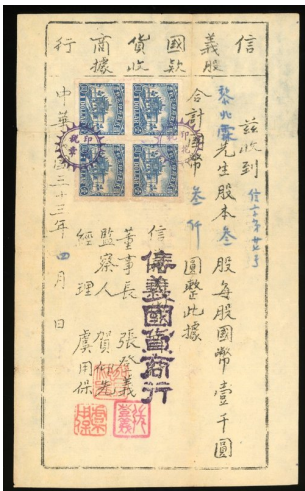 信義國貨商行
股款收據
茲收到
黎兆霖先生股本叁股每股國幣壹千圓
合計國幣叁仟圓整此據
信義國貨商行
董事長 張發義
監察人 賀仰先
經理 虞用保
中華民國三十三年四月日